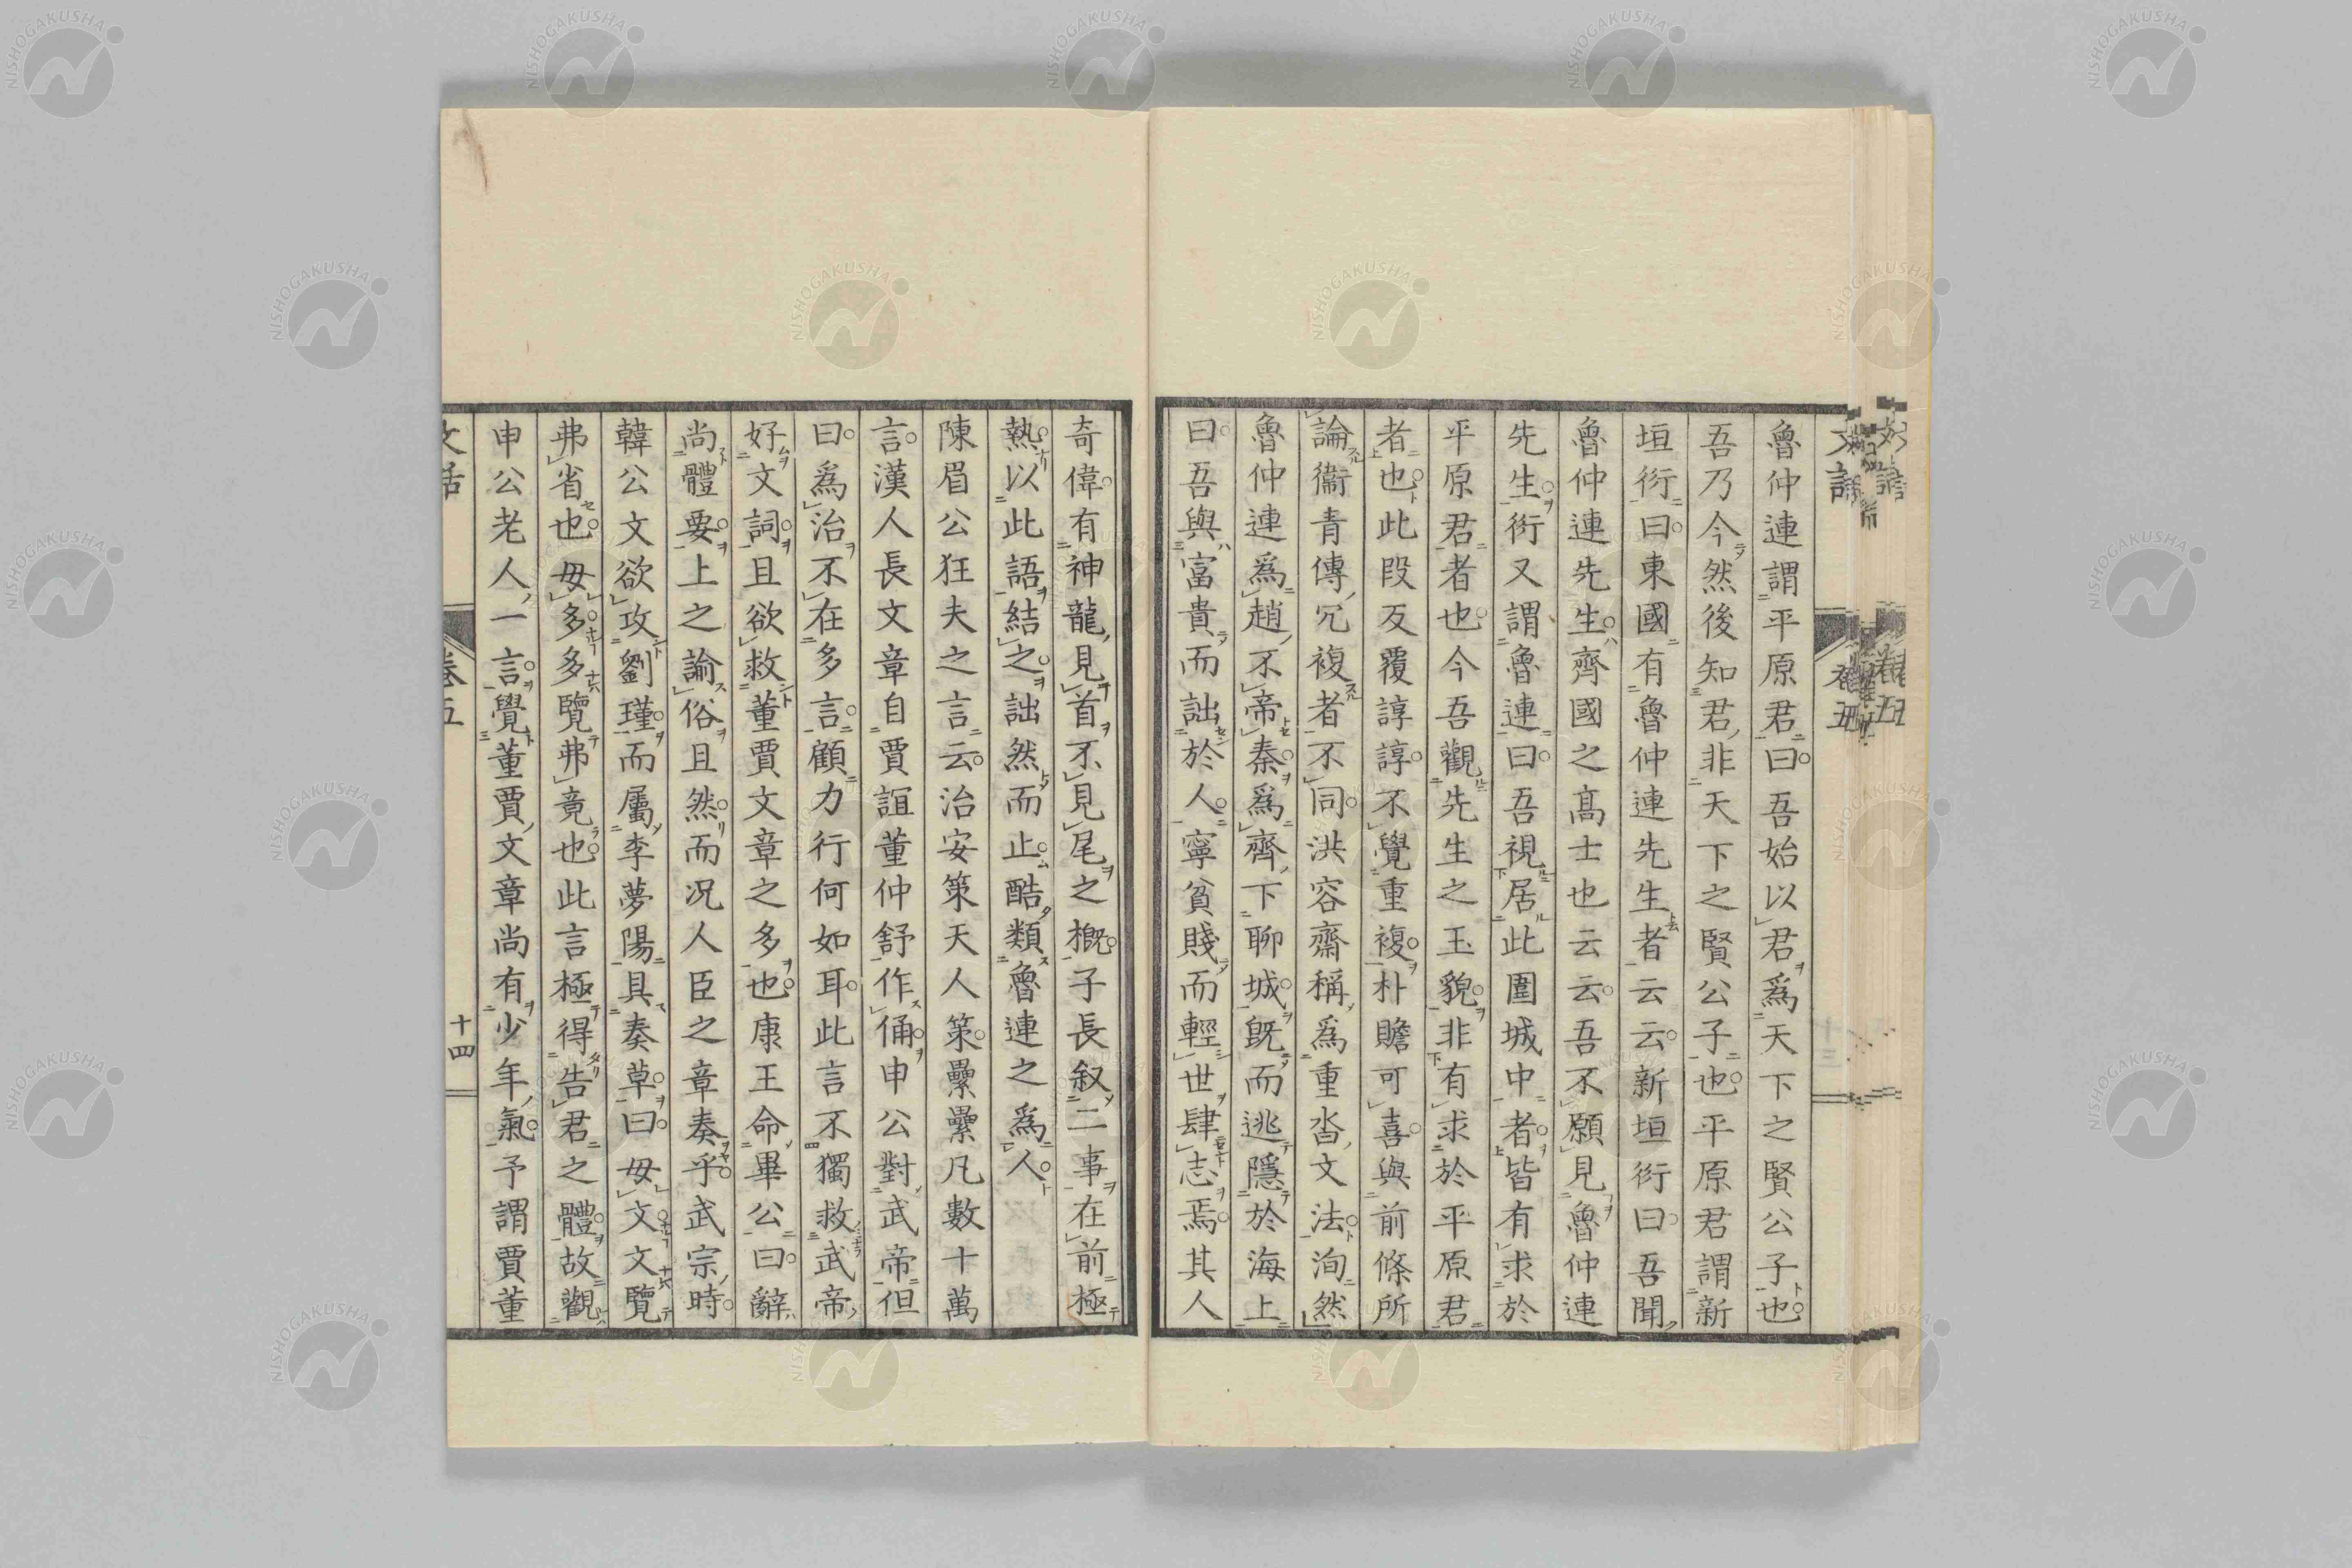 魯仲連謂平原君曰吾始以君爲天下之賢公子也
吾乃今然後知君非天下之賢公子也平原君謂新
垣衍曰東國有魯仲連先生者云云新垣衍曰吾聞
魯仲連先生齊國之高士也云云吾不願見魯仲連
先生衍又謂魯連曰吾視居此圍城中者皆有求於
平原君者也今吾觀先生之玉貌非有求於平原君
者也此段反覆諄諄不覺重複朴贍可喜與前條所
論衞青傳冗複者不同洪容齋稱爲重沓文法洵然
魯仲連爲趙不帝秦爲齊下聊城既而逃隱於海上
曰吾與富貴而詘於人寧貧賤而輕世肆志焉其人
奇偉有神龍見首不見尾之概子長叙二事在前極
熱以此語結之詘然而止酷類魯連之爲人
陳眉公狂夫之言云治安策天人策纍纍凡數十萬
言漢人長文章自賈誼董仲舒作俑申公對武帝但
曰爲治不在多言顧力行何如耳此言不獨救武帝
好文詞且欲救董賈文章之多也康王命畢公曰辭
尚體要上之諭俗且然而况人臣之章奏乎武宗時
韓公文欲攻劉瑾而屬李夢陽具奏草曰毋文文覽
弗省也毋多多覽弗竟也此言極得告君之體故觀
申公老人一言覺董賈文章尚有少年氣予謂賈董
文話
卷五
十四
文話
卷五
NISHOGAKUSHA